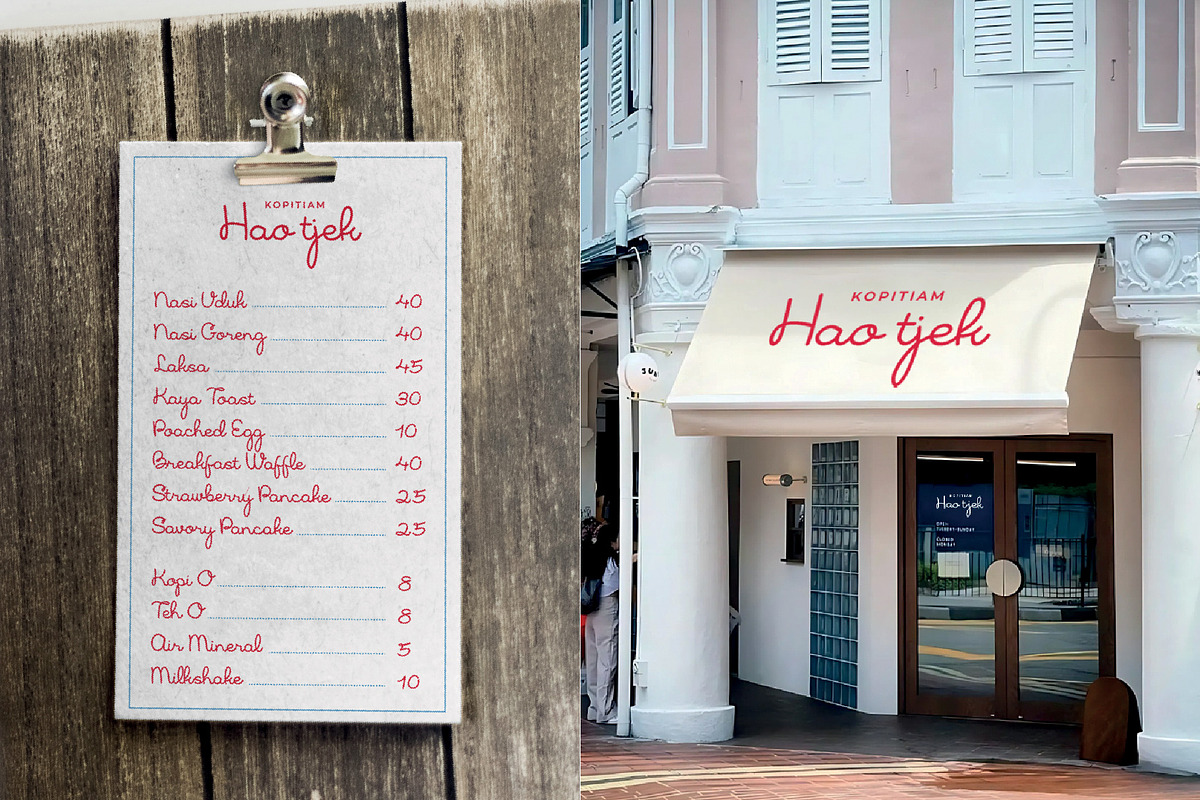 KOPITIAM
Hao tjek
Nasi Uduk 40
Nasi Goreng 40
Laksa 45
Kaya Toast 30
Poached Egg 10
Breakfast Waffle 40
Strawberry Pancake 25
Savory Pancake 25
Kopi O 8
Teh O 8
Air Mineral 5
Milkshake 10
KOPITIAM
Hao tjek
KOPITIAM
Hao tjek
OPEN
TUESDAY-SUNDAY
CLOSED
MONDAY